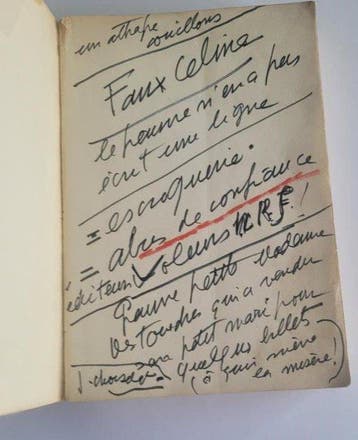 un attrape
couillons
Faux Celine
le pauvre n'en a pas
écrit une ligne
= escroquerie.
= abus de confiance
éditeurs Voleurs NRF!
Pauvre petite Madame
Destouches qui a vendu
son petit mari pour
quelques billets
(à quoi mène
la misère!)